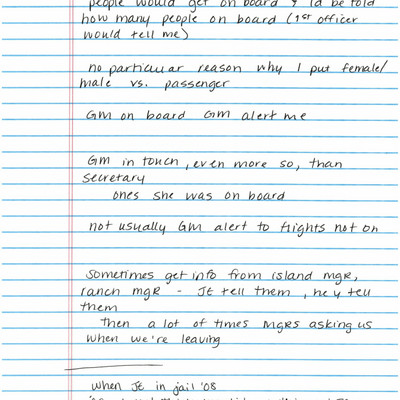 people would get on board & I'd be told
how many people on board (1st officer
would tell me)
no particular reason why I put female/
male vs. passenger
GM on board GM alert me
GM in touch, even more so, than
secretary
ones she was on board
not usually GM alert to flights not on
Sometimes get info from island mgr,
ranch mgr - JE tell them, he y tell
them
then a lot of times mgrs asking us
when we're leaving
when JE in jail '08